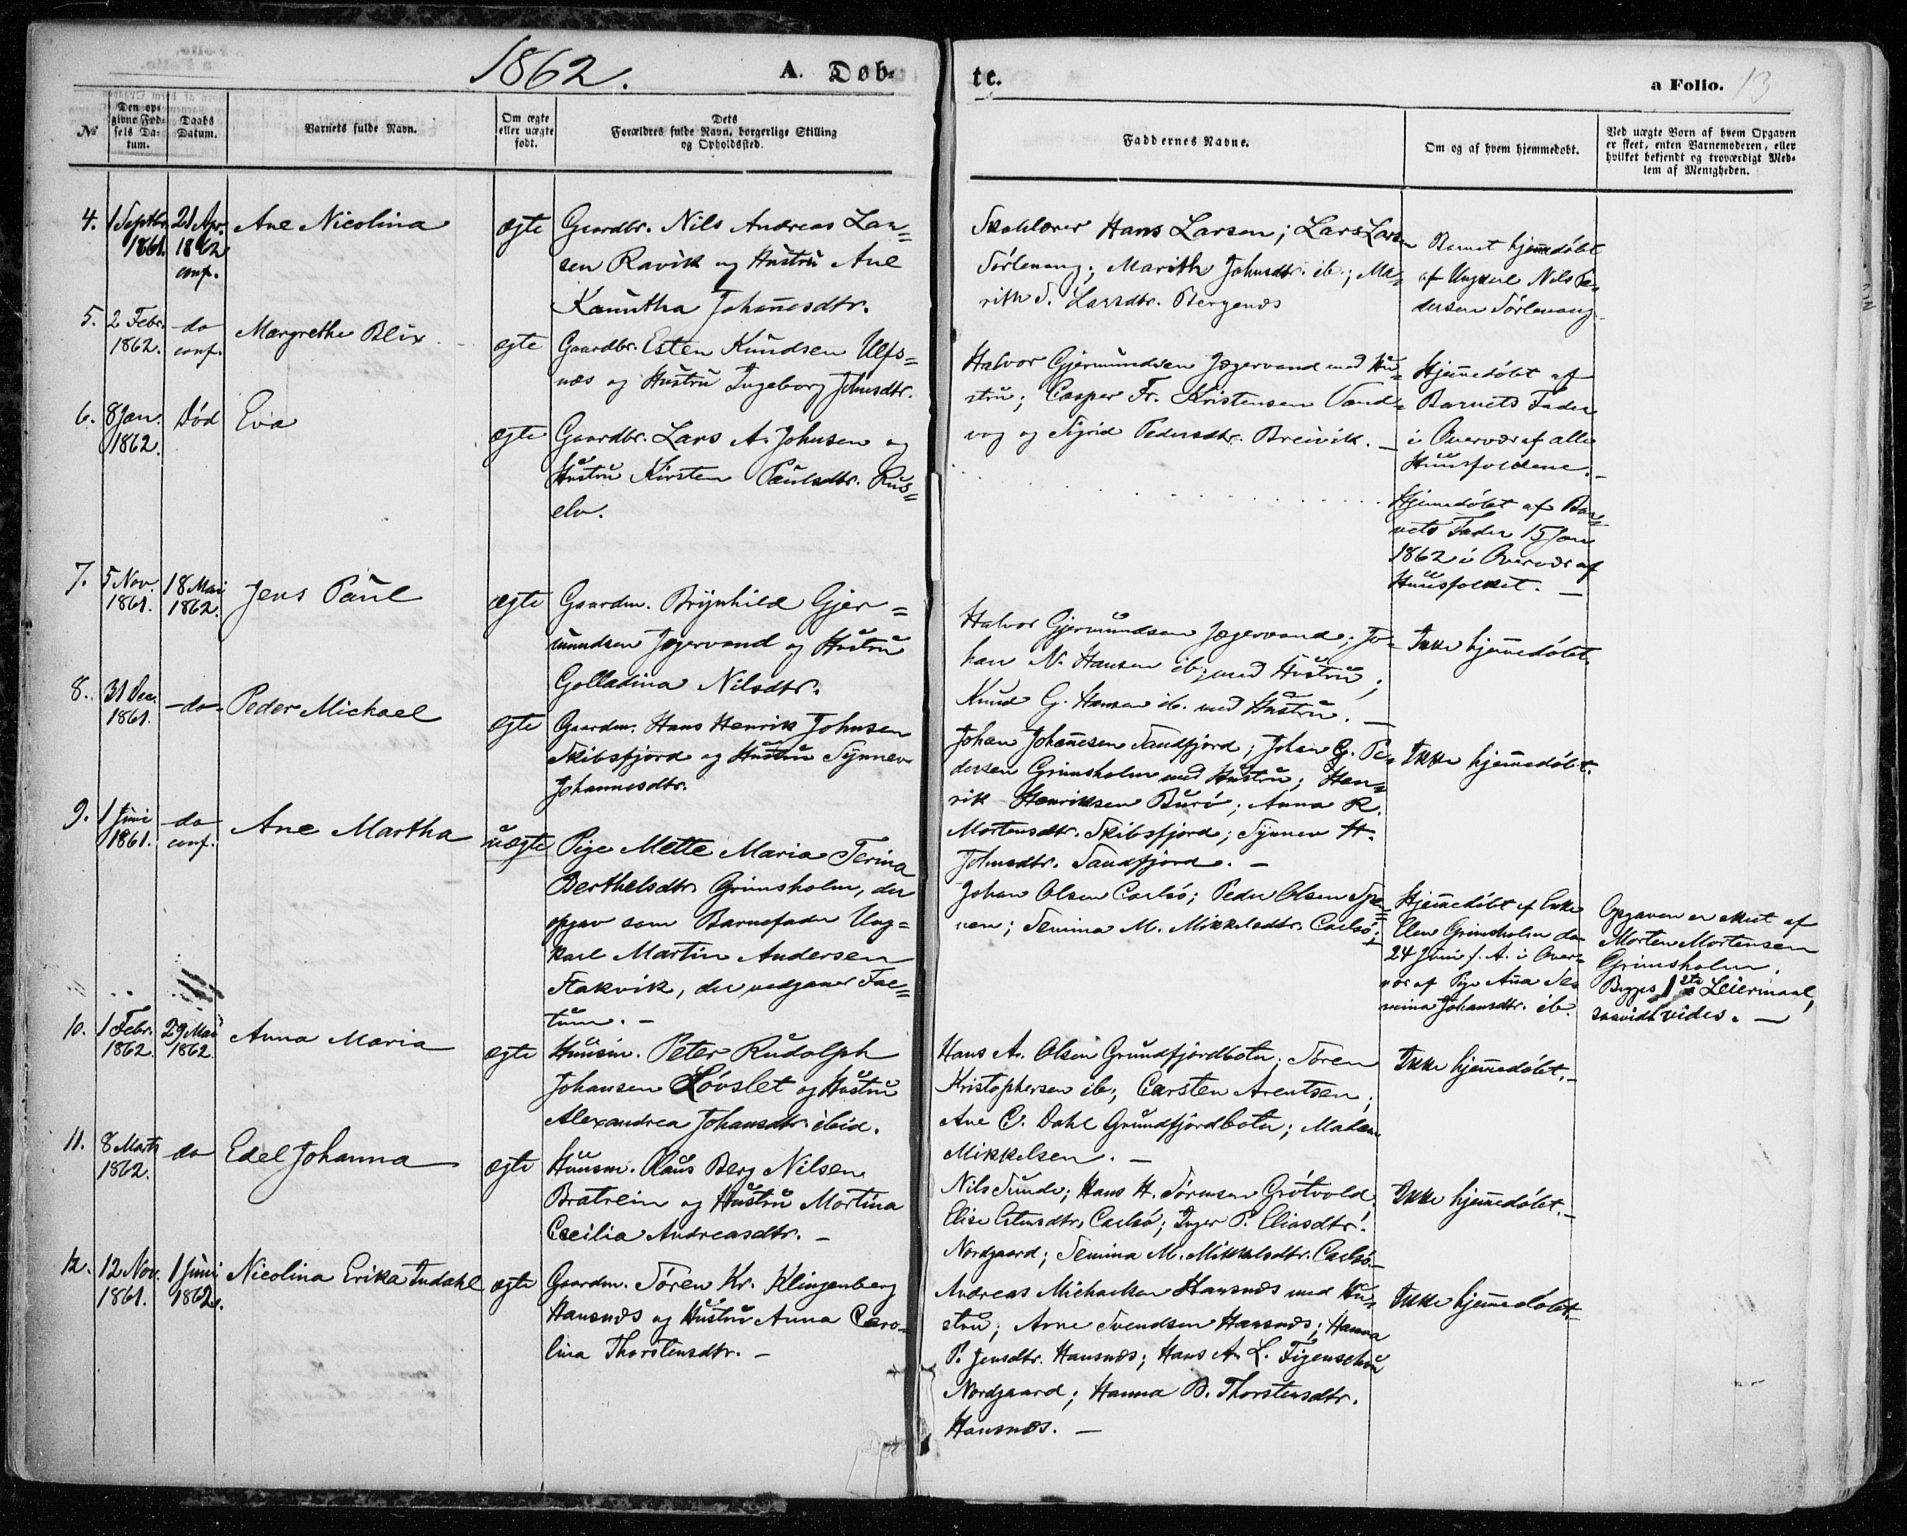 1862.
A. Døb-
te.
a Folio. 13
№
Den op-
givne Fød-
sels Da-
tum.
Daabs
Datum.
Barnets fulde Navn.
Om ægte
eller uægte
født.
Dets
Forældres fulde Navn, borgerlige Stilling
og Opholdssted.
Faddernes Navne.
Om og af hvem hjemmedøbt.
Ved uægte Born af hvem Opgaven
er skeet, enten Barnemoderen, eller
hvilket bekjendt og troværdigt Med-
lem af Menigheden.
4.
1 Septbr.
1861.
21 Apr.
1862
conf.
Ane Nicolina
ægte
Gaardbr. Nils Andreas Lar=
sen Ravik og Hustru Ane
Kanutha Johañesdtr.
Skolelærer Hans Larsen; Lars Larsen
Sørlenang; Marith Johnsdtr. ib.; Ma-
rith S. Larsdtr. Bergenæs
Barnet hjem̄edøbt
af Ungkarl Nils Pe-
dersen Sørlenang.
5.
2 Febr.
1862.
do
conf.
Margrethe Blix
ægte
Gaardbr. Esten Knudsen Ulfs-
næs og Hustru Ingeborg Johnsdtr.
Halvor Gjermundsen Jægervand med Hu-
stru; Casper Fr. Kristensen Vand-
vag og Sigrid Pedersdtr. Breivik. —
Hjem̄edøbt af
Barnets Fader
i Overvær af alle
Huusfolkene. —
6.
8 Jan.
1862.
Død
Eva
ægte
Gaardbr. Lars A. Johnsen og
Hustru Kirsten Paulsdtr. Rus=
elv.
Hjem̄edøbt af Bar=
nets Fader 15 Jan
1862 i Overvær af
Huusfolket. —
7.
5 Nov.
1861.
18 Mai
1862.
Jens Paul
ægte
Gaardm. Brynhild Gjer=
mundsen Jægervand og Hustru
Golladina Nilsdtr.
Halvor Gjermundsen Jægervand; Jo-
han N. Hansen ib. med Hustru;
Knud G. Hansen ib. med Hustru. —
Ikke hjem̄edøbt.
8.
31 Dec.
1861.
—do—
Peder Michael
ægte
Gaardm. Hans Henrik Johnsen
Skibsfjord og Hustru Synnev
Johannesdtr.
Johan Johañesen Sandfjord; Johan G. Pe-
dersen Grimsholm med Hustru; Hen-
rik Henriksen Burø; Anna K.
Mortensdtr. Skibsfjord; Synnev H.
Johnsdtr. Sandfjord. —
Ikke hjem̄edøbt.
9.
1 Juni
1861.
do
conf.
Ane Martha
uægte
Pige Mette Maria Serina
Berthelsdtr. Grimsholm, der
opgav som Barnefader Ung=
karl Martin Andersen
Stakvik, der vedgaaer Fac=
tum. —
Johan Olsen Carlsø; Peder Olsen Spe=
nen; Semina M. Mikkelsdtr. Carlsø. —
Hjem̄edøbt af Enke
Elen Grimsholm do
24 Juni f. A. i Over-
vær af Pige Aña Se-
mina Johansdtr. ib.
Opgaven er skeet af
Morten Mortensen
Grimsholm.
Begges 1ste Leiermaal,
saavidt vides. —
10.
1 Febr.
1862
29 Mai
1862.
Anna Maria
ægte
Huusm. Peter Rudolph
Johansen Løvslet og Hustru
Alexandrea Johansdtr. ibid.
Hans A. Olsen Grundfjordbotn; Søren
Kristophersen ib.; Carsten Arentsen;
Ane C. Dahl Grundfjordbotn; Madam
Mikkelsen. —
Ikke hjem̄edøbt. —
11.
8 Marts
1862.
do
Edel Johanna
ægte
Huusm. Claus Berg Nilsen
Bratrein og Hustru Martina
Cecilia Andreasdtr. —
Nils Sunde; Hans H. Sørensen Grøtvold;
Elise Estensdtr. Carlsø; Inger P. Eliasdtr.
Nordgaard; Semina M. Mikkelsdtr. Carlsø. —
Ikke hjem̄edøbt. —
12.
12 Nov.
1861.
1 Juni
1862.
Nicolina Erika Indahl
ægte
Gaardm. Søren Kr. Klingenberg
Hansnæs og Hustru Anna Caro-
lina Thorstensdtr. —
Andreas Michaelsen Hansnæs med Hu-
stru; Arne Svendsen Hansnæs; Hanna
P. Jensdtr. Hansnæs; Hans A. L. Figenschou
Nordgaard; Hanna B. Thorstensdtr.
Hansnæs. —
Ikke hjem̄edøbt. —